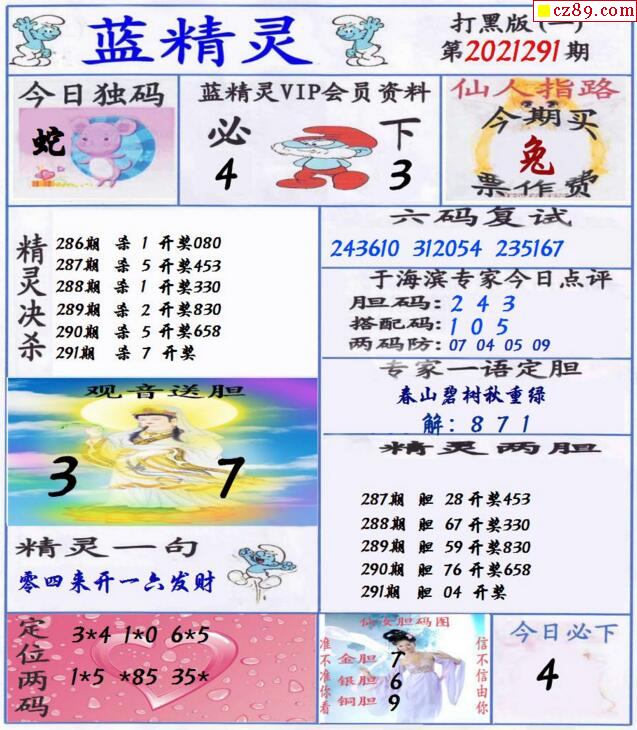 cz89.com
蓝精灵
打黑版(一)
第2021291期
今日独码
蛇
蓝精灵VIP会员资料
必 下
4 3
仙人指路
今期买
兔
票作费
精灵决杀
286期 杀 1 开奖080
287期 杀 5 开奖453
288期 杀 1 开奖330
289期 杀 2 开奖830
290期 杀 5 开奖658
291期 杀 7 开奖
六码复试
243610 312054 235167
于海滨专家今日点评
胆码: 2 4 3
搭配码: 1 0 5
两码防: 07 04 05 09
专家一语定胆
春山碧树秋重绿
解: 8 7 1
观音送胆
3 7
精灵两胆
287期 胆 28 开奖453
288期 胆 67 开奖330
289期 胆 59 开奖830
290期 胆 76 开奖658
291期 胆 04 开奖
精灵一句
零四来开一六发财
定位两码
3*4 1*0 6*5
1*5 *85 35*
仙女胆码图
准不准你看
金胆 7
银胆 6
铜胆 9
信不信由你
今日必下
4